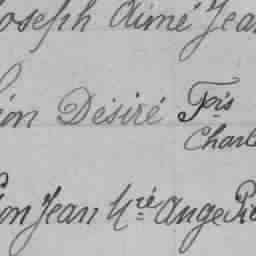 Joseph Aimé Jean
Léon Désiré Fois
Charl
Léon Jean M^ré Ange Pie